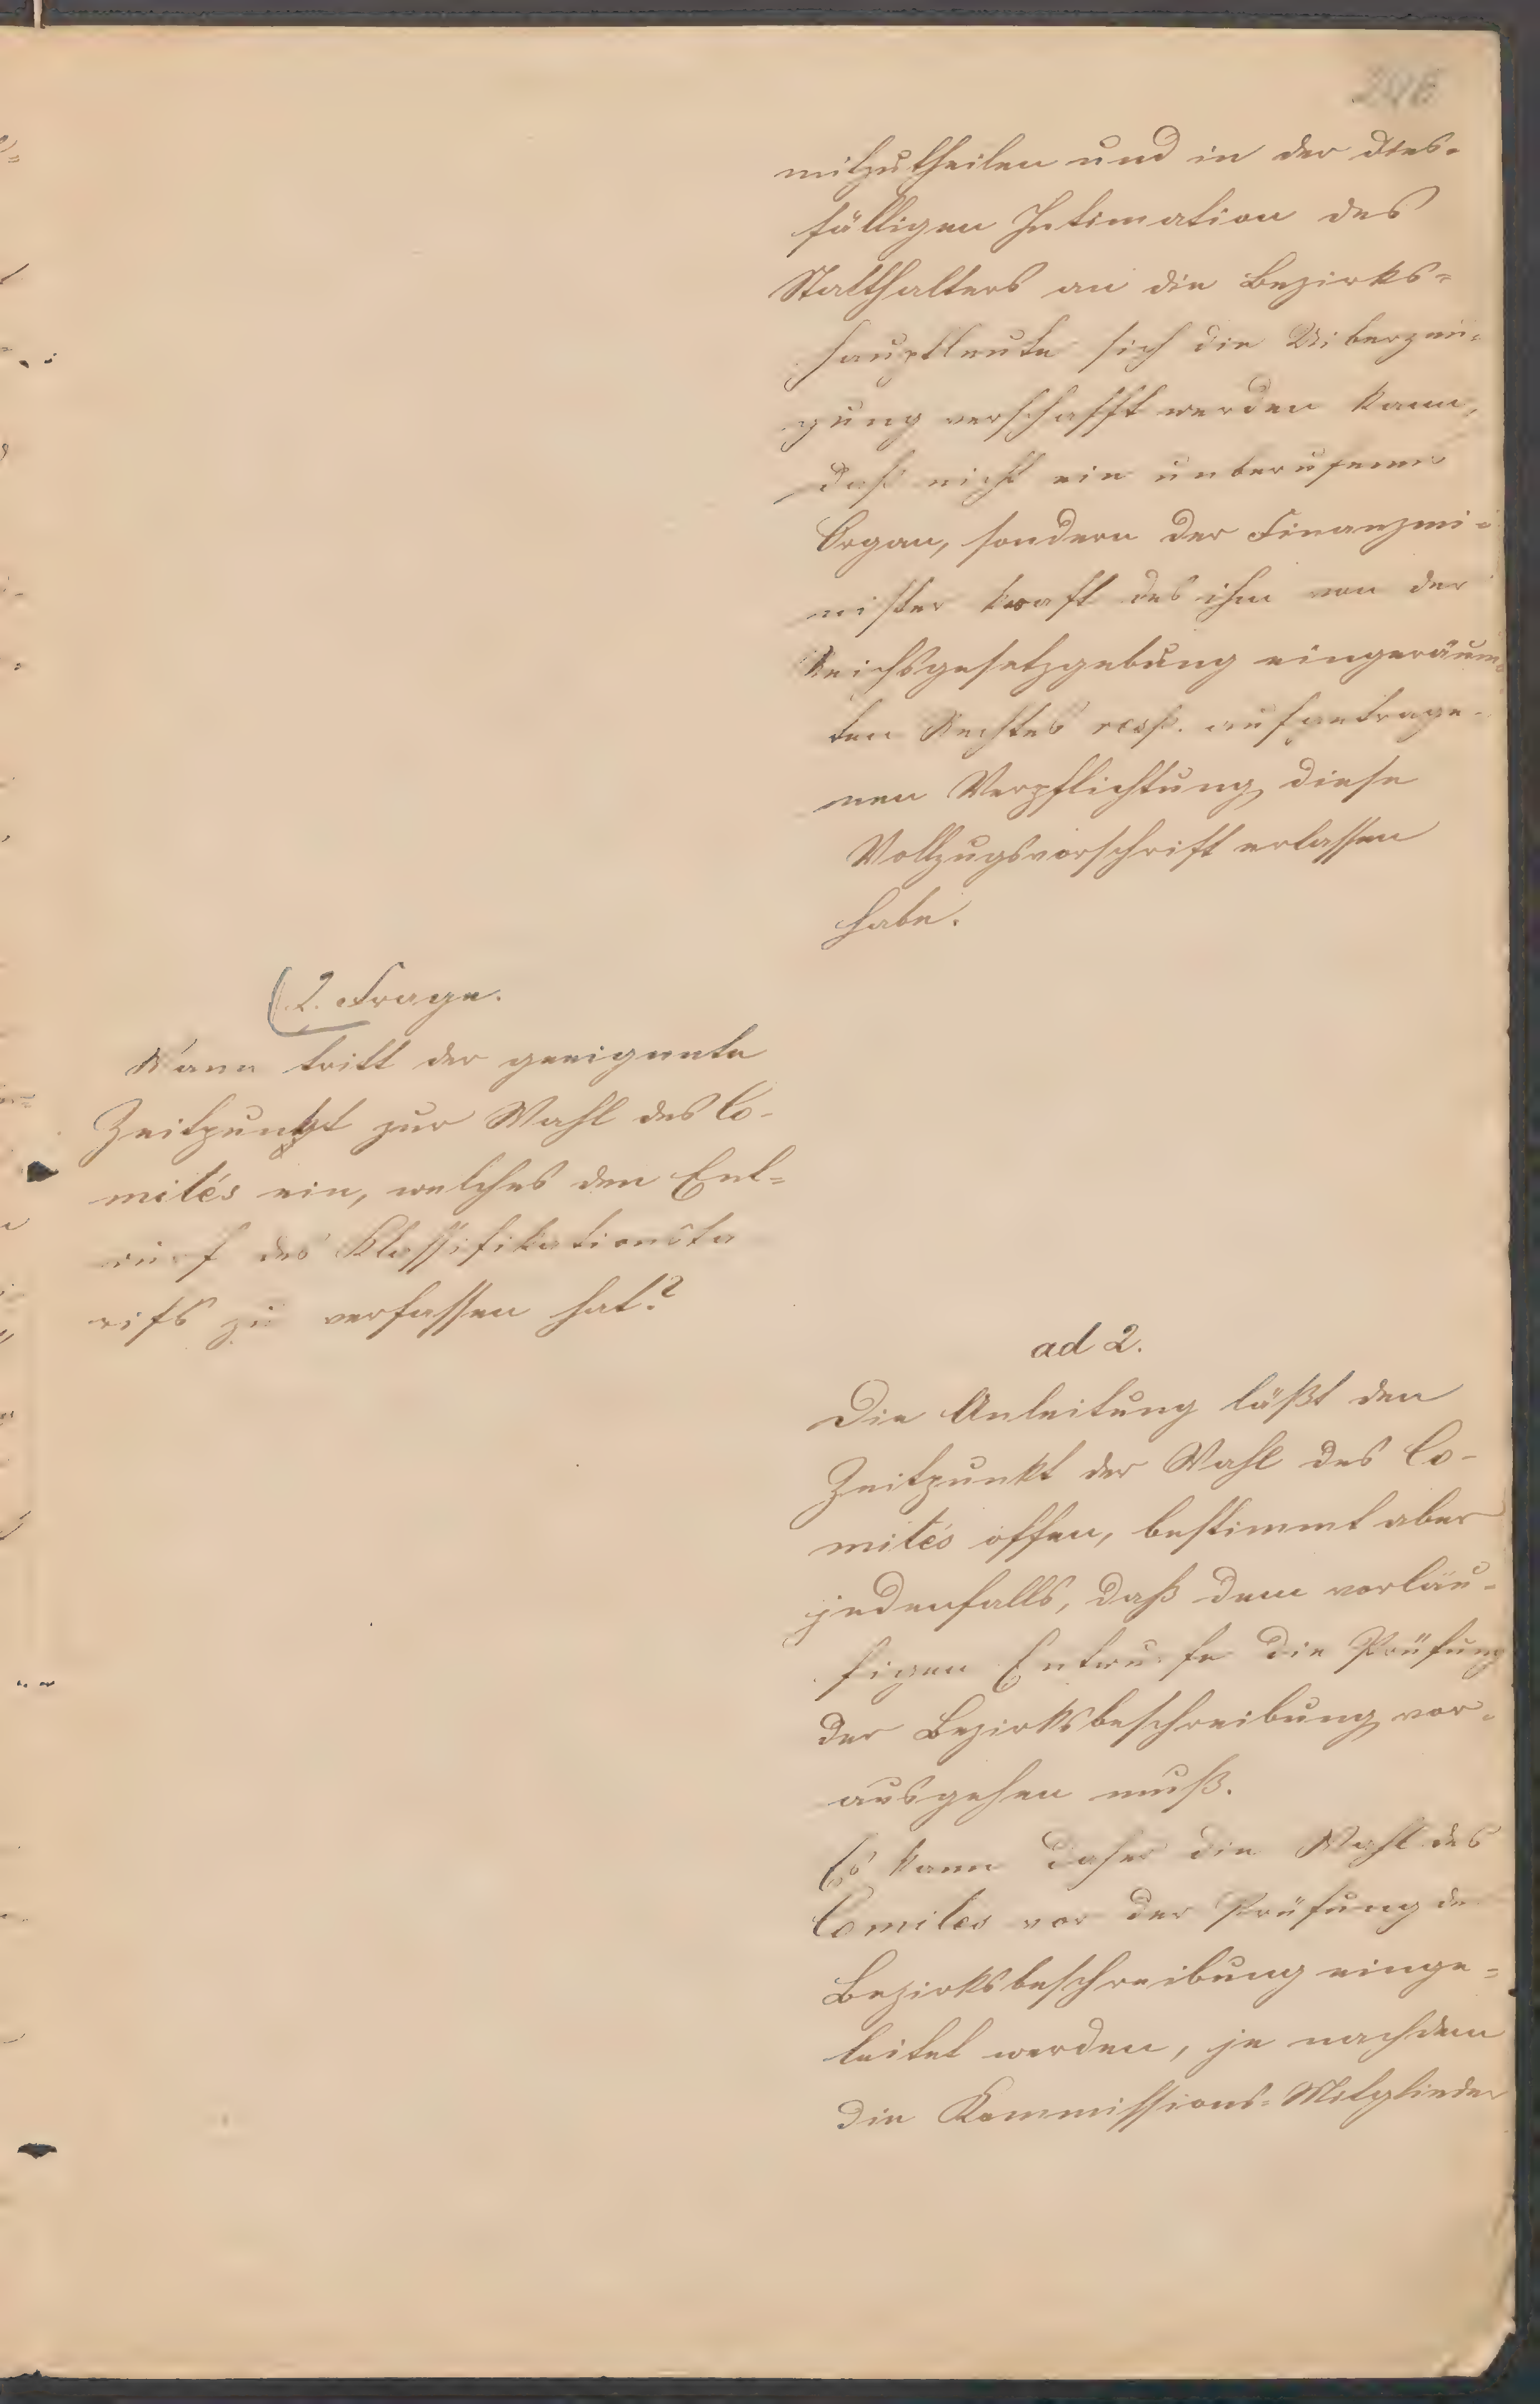 mitzutheilen und in der dies-
fälligen Intimation des
Statthalters an die Bezirks=
hauptleute sich die Uiberzeu-
gung verschafft werden kann,
daß nicht ein unberufenes
Organ, sondern der Finanzmi-
nister kraft des ihm von der
Reichsgesetzgebung eingeräum-
ten Rechtes resp. aufgetrage-
nen Verpflichtung diese
Vollzugsvorschrift erlassen
habe.
2. Frage.
Wann tritt der geeignete
Zeitpunkt zur Wahl des Co-
mités ein, welches den Ent=
wurf des Klassifikationsta
rifs zu verfassen hat?
ad 2.
Die Anleitung läßt den
Zeitpunkt der Wahl des Co-
mités offen, bestimmt aber
jedenfalls, daß dem vorläu-
figen Entwurfe die Prüfung
der Bezirksbeschreibung vor-
ausgehen muß.
Es kann daher die Wahl des
Comites vor der Prüfung der
Bezirksbeschreibung einge=
leitet werden, je nachdem
die Kommissions-Mitglieder